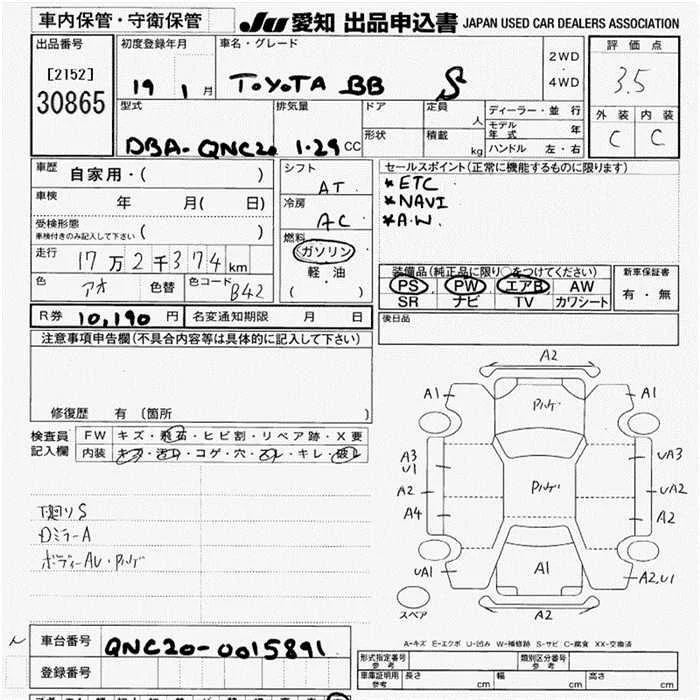 車内保管・守衛保管
JU 愛知 出品申込書 JAPAN USED CAR DEALERS ASSOCIATION
出品番号
[2152]
30865
初度登録年月
19 1 月
車名・グレード
TOYOTA BB S
2WD
・
4WD
評価点
3.5
外装 内装
C C
型式
DBA-QNC20
排気量
1.29 CC
ドア
形状
定員
人
積載
kg
ディーラー・並行
モデル年式 年
ハンドル 左・右
車歴
自家用・( )
車検
年 月( 日)
受検形態
車検付きのみ記入して下さい ( )
走行
17万2千374km
色
アオ
色替
色コード
B42
シフト
AT
冷房
AC
燃料
ガソリン
軽油
( )
セールスポイント(正常に機能するものに限ります)
*ETC
*NAVI
*A.W.
装備品(純正品に限り○をつけてください)
PS PW エアB AW
SR ナビ TV カワシート
新車保証書
有・無
R券 10,190 円
名変通知期限 月 日
後日品
注意事項申告欄(不具合内容等は具体的に記入して下さい)
修復歴 有 〔箇所 〕
検査員
記入欄
FW キズ・飛石・ヒビ割・リペア跡・X要
内装 キズ・汚れ・コゲ・穴・スレ・キレ・破レ
下廻りS
DミラーA
ボディーAU・PハゲA2
A1
A1
Pハゲ
A3
U1
UA3
A2
Pハゲ
UA2
A4
A2
UA1
A1
A2,U1
スペア
A2
A-キズ E-エクボ U-凹み W-補修跡 S-サビ C-腐食 XX-交換済
車台番号
QNC20-0015891
登録番号
形式指定番号
参考
類別区分番号
参考
車庫証明用
参考
長さ cm
幅 cm
高さ cm